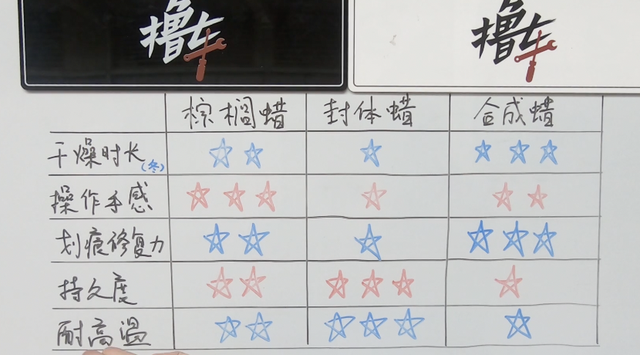 撸车 撸车
棕榈蜡 封体蜡 合成蜡
干燥时长(冬) ☆☆ ☆ ☆☆☆
操作手感 ☆☆☆ ☆ ☆☆
划痕修复力 ☆☆ ☆ ☆☆☆
持久度 ☆☆ ☆☆☆ ☆
耐高温 ☆☆ ☆☆☆ ☆